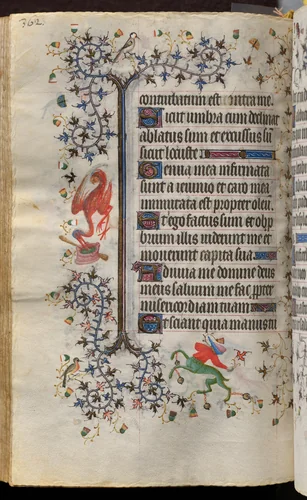 362.
conturbatum est contra me.
Sicut umbra cum declinat
ablatus sum et excussus su
sicut locuste
Genua mea infirmata
sunt a ieiunio et caro mea
immutata est propter oleu.
Et ego factus sum et obp
brium illis uiderunt me et
mouerunt capita sua
Adiuua me domine deus
meus saluum me fac p̱pter
misericordiam tuam
Et sciant quia manus tu